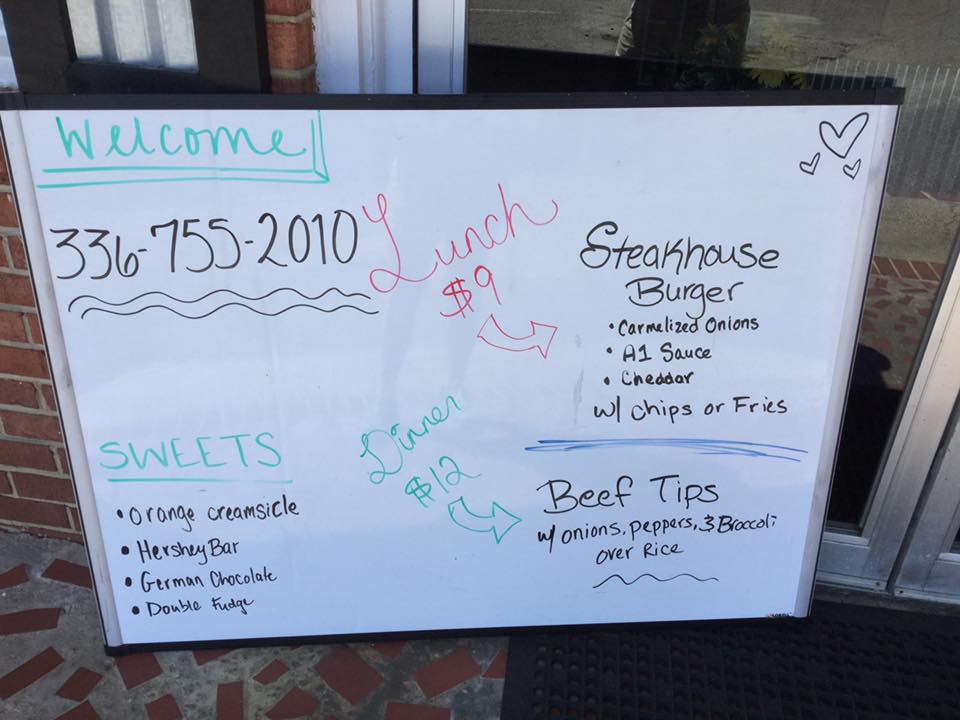 Welcome
336-755-2010
Lunch
$9
Steakhouse
Burger
• Carmelized Onions
• A1 Sauce
• Cheddar
w/ chips or Fries
Dinner
$12
Beef Tips
w/ onions, peppers, & Broccoli
over Rice
SWEETS
• Orange creamsicle
• Hershey Bar
• German Chocolate
• Double Fudge